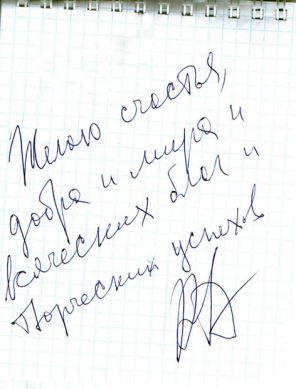 Желаю счастья,
добра и мира и
всяческих благ и
творческих успехов